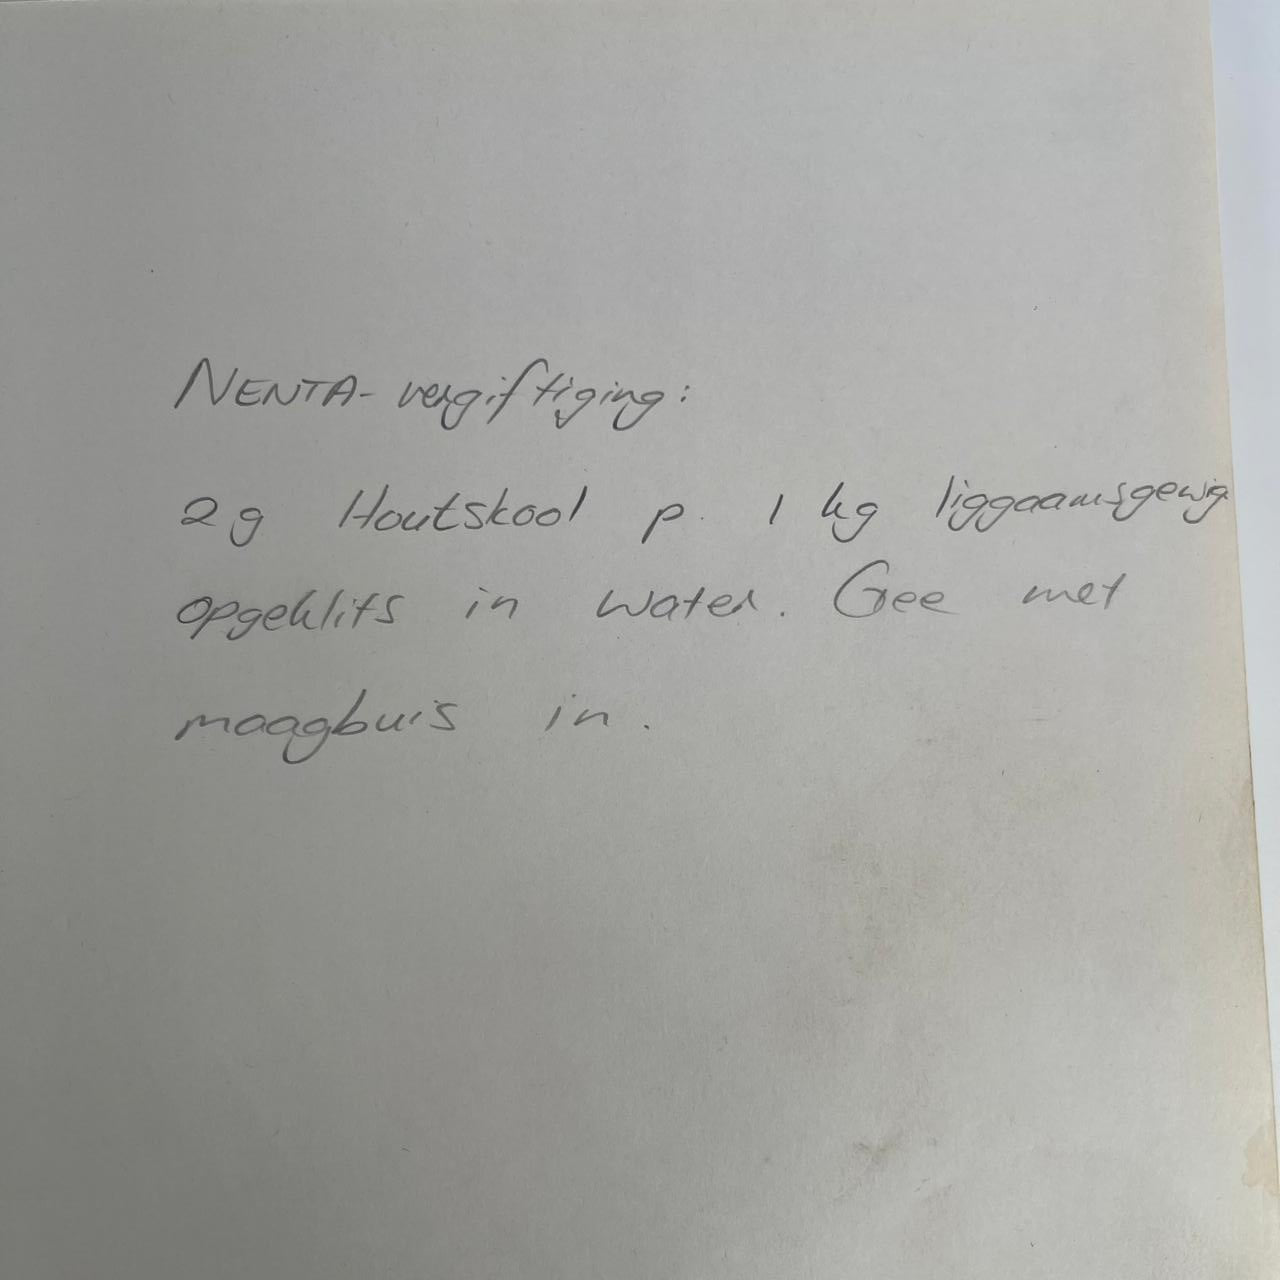 NENTA-vergiftiging:
2g Houtskool p. 1 kg liggaamsgewig
opgeklits in water. Gee met
maagbuis in.